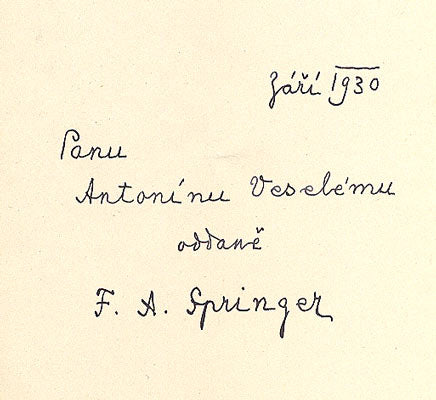 Září 1930
Panu
Antonínu Veselému
oddaně
F. A. Springer